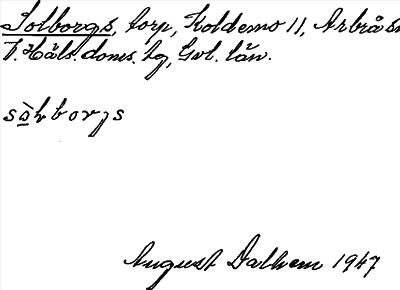 Solborgs, torp, Koldemo 11, Arbrå sn
V. Häls. doms. hg, Gvl. län.
sòlborgs
August Dalhem 1947